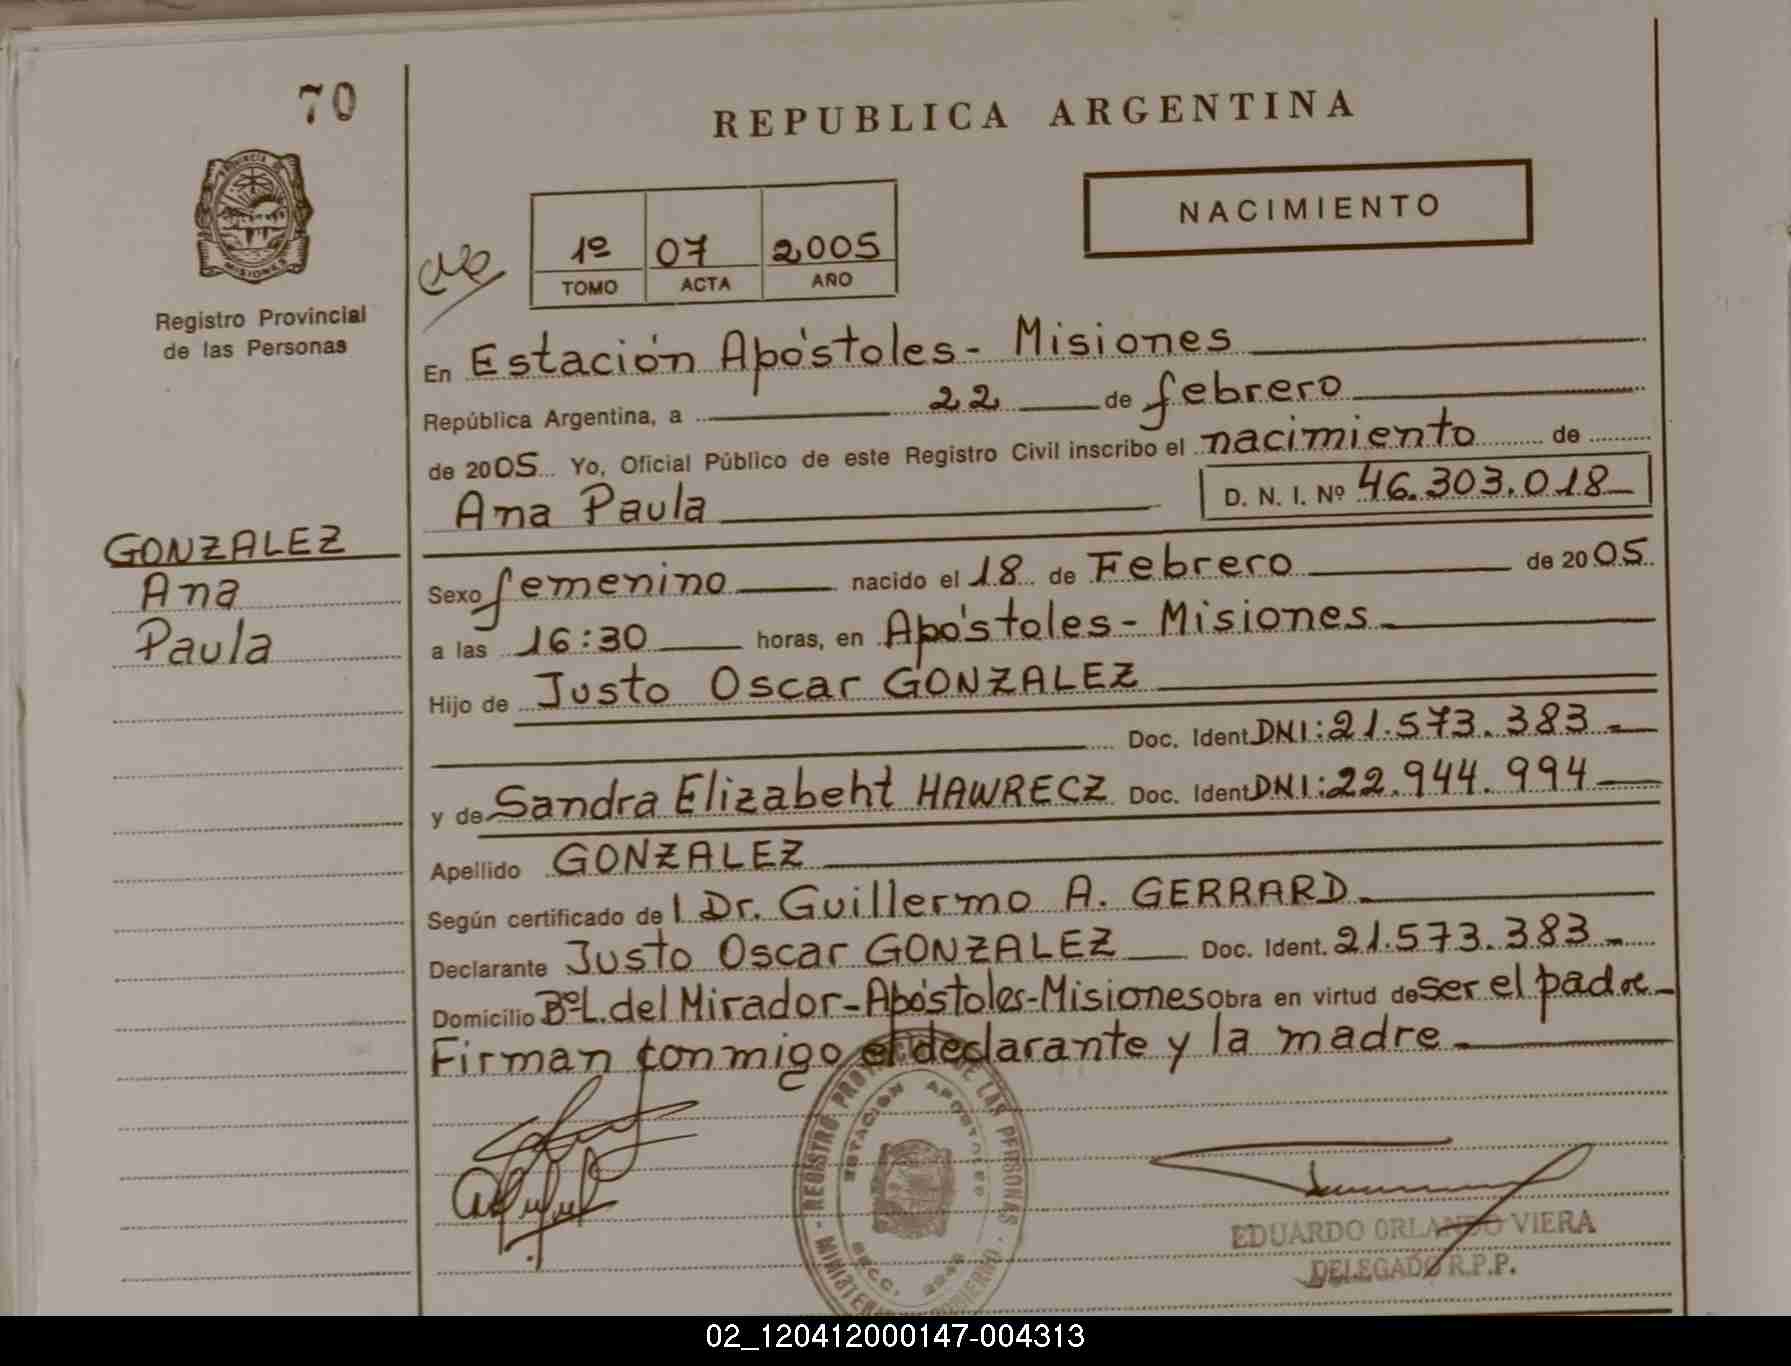 70
REPUBLICA ARGENTINA
NACIMIENTO
1º 07 2005
TOMO ACTA AÑO
PROVINCIA DE
MISIONES
Registro Provincial
de las Personas
En Estación Apóstoles - Misiones
República Argentina, a 22 de febrero
de 2005 Yo, Oficial Público de este Registro Civil inscribo el nacimiento de
Ana Paula D. N. I. Nº 46.303.018
GONZALEZ
Ana
Paula
Sexo femenino nacido el 18 de Febrero de 2005
a las 16:30 horas, en Apóstoles - Misiones
Hijo de Justo Oscar GONZALEZ
Doc. Ident. DNI: 21.573.383
y de Sandra Elizabeht HAWRECZ Doc. Ident. DNI: 22.944.994
Apellido GONZALEZ
Según certificado de l Dr. Guillermo A. GERRARD
Declarante Justo Oscar GONZALEZ Doc. Ident. 21.573.383
Domicilio BºL. del Mirador - Apóstoles - Misiones Obra en virtud de ser el padre
Firman conmigo el declarante y la madre
REGISTRO DE LAS PERSONAS
ESTACION APOSTOLES
EDUARDO ORLANDO VIERA
DELEGADO R.P.P.
02_120412000147-004313